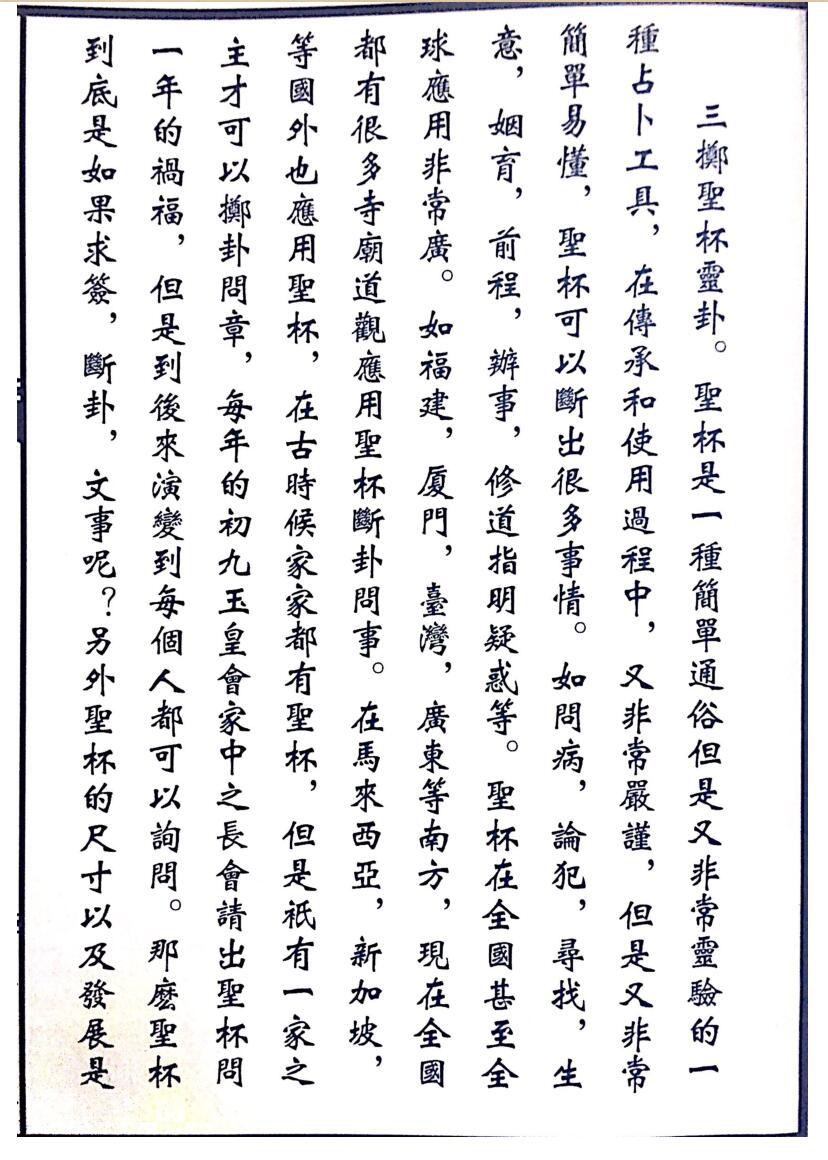 三擲聖杯靈卦。聖杯是一種簡單通俗但是又非常靈驗的一
種占卜工具，在傳承和使用過程中，又非常嚴謹，但是又非常
簡單易懂，聖杯可以斷出很多事情。如問病，論犯，尋找，生
意，姻育，前程，辦事，修道指明疑惑等。聖杯在全國甚至全
球應用非常廣。如福建，廈門，臺灣，廣東等南方，現在全國
都有很多寺廟道觀應用聖杯斷卦問事。在馬來西亞，新加坡，
等國外也應用聖杯，在古時候家家都有聖杯，但是衹有一家之
主才可以擲卦問章，每年的初九玉皇會家中之長會請出聖杯問
一年的禍福，但是到後來演變到每個人都可以詢問。那麼聖杯
到底是如果求簽，斷卦，文事呢？另外聖杯的尺寸以及發展是